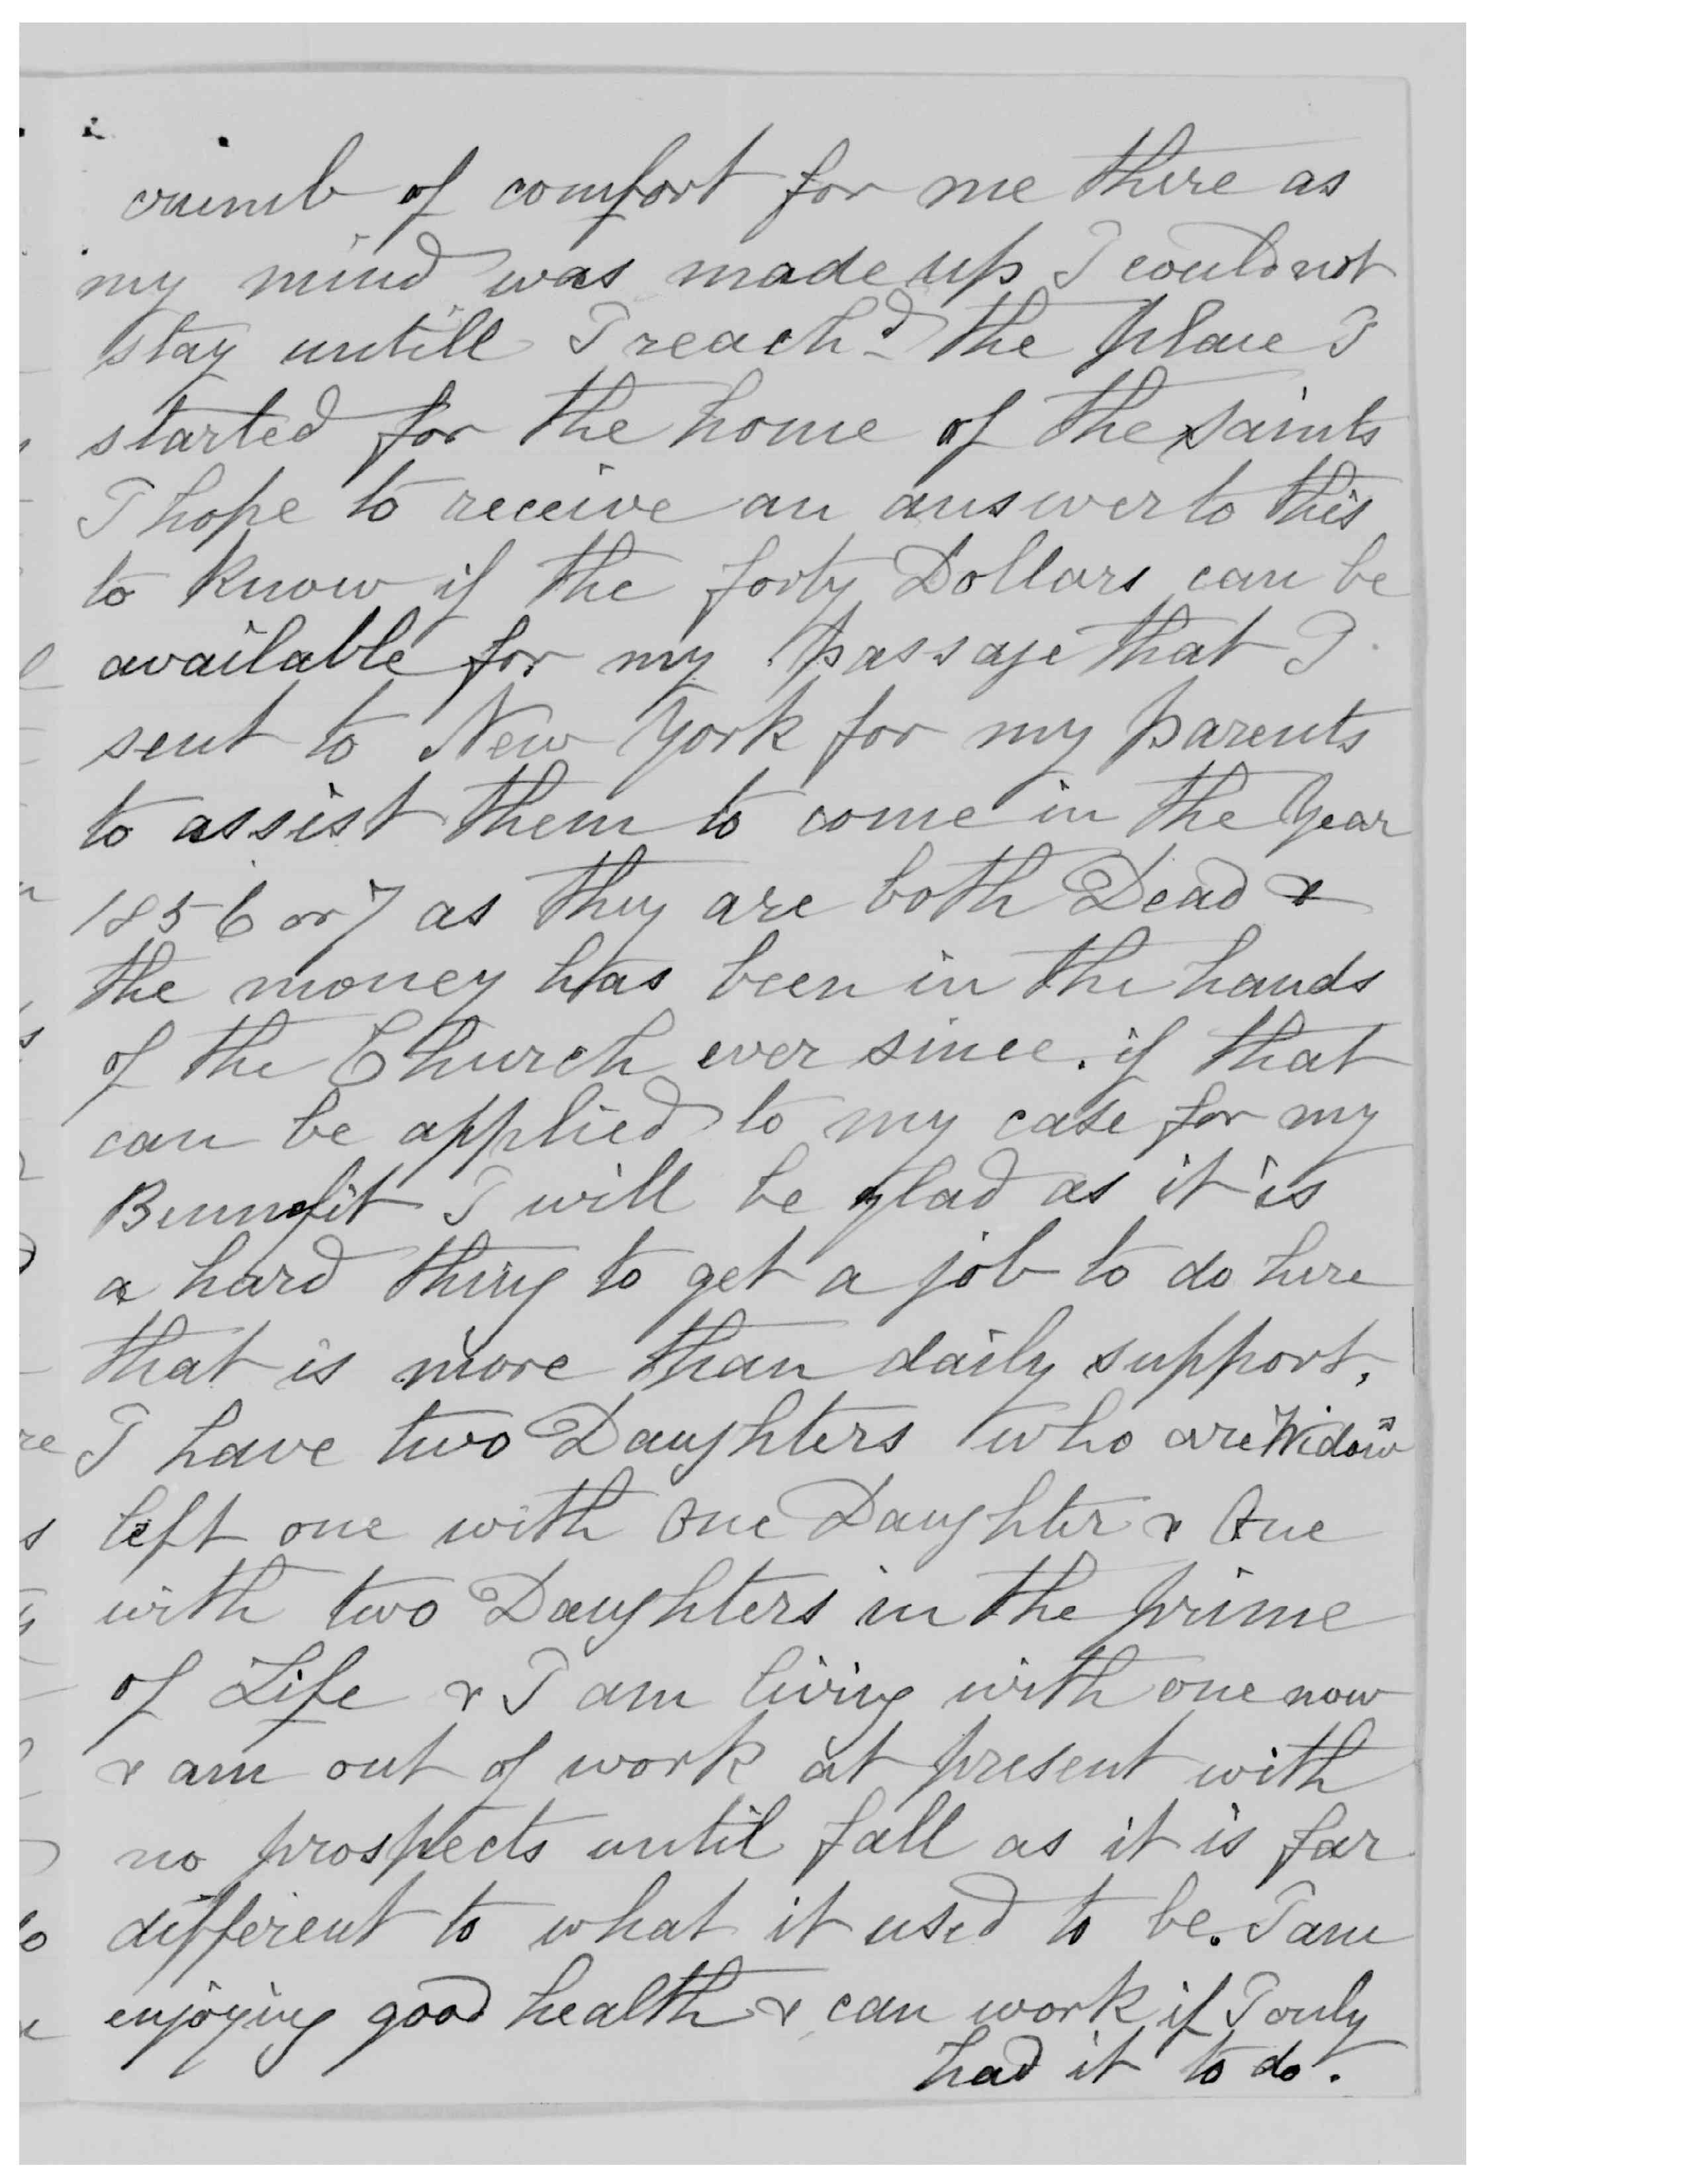 crumb of comfort for me there as
my mind was made up I could not
stay untill I reachd the place I
started for the home of the saints
I hope to receive an answer to this
to know if the forty Dollars can be
available for my passage that I
sent to New York for my parents
to assist them to come in the Year
1856 or 7 as they are both Dead &
the money has been in the hands
of the Church ever since. if that
can be applied to my case for my
Bennefit I will be glad as it is
a hard thing to get a job to do here
that is more than daily support,
I have two Daughters who are Widows
left one with One Daughter & One
with two Daughters in the prime
of Life & I am living with one now
& am out of work at present with
no prospects until fall as it is far
different to what it used to be. I am
enjoying good health & can work if I only
had it to do.